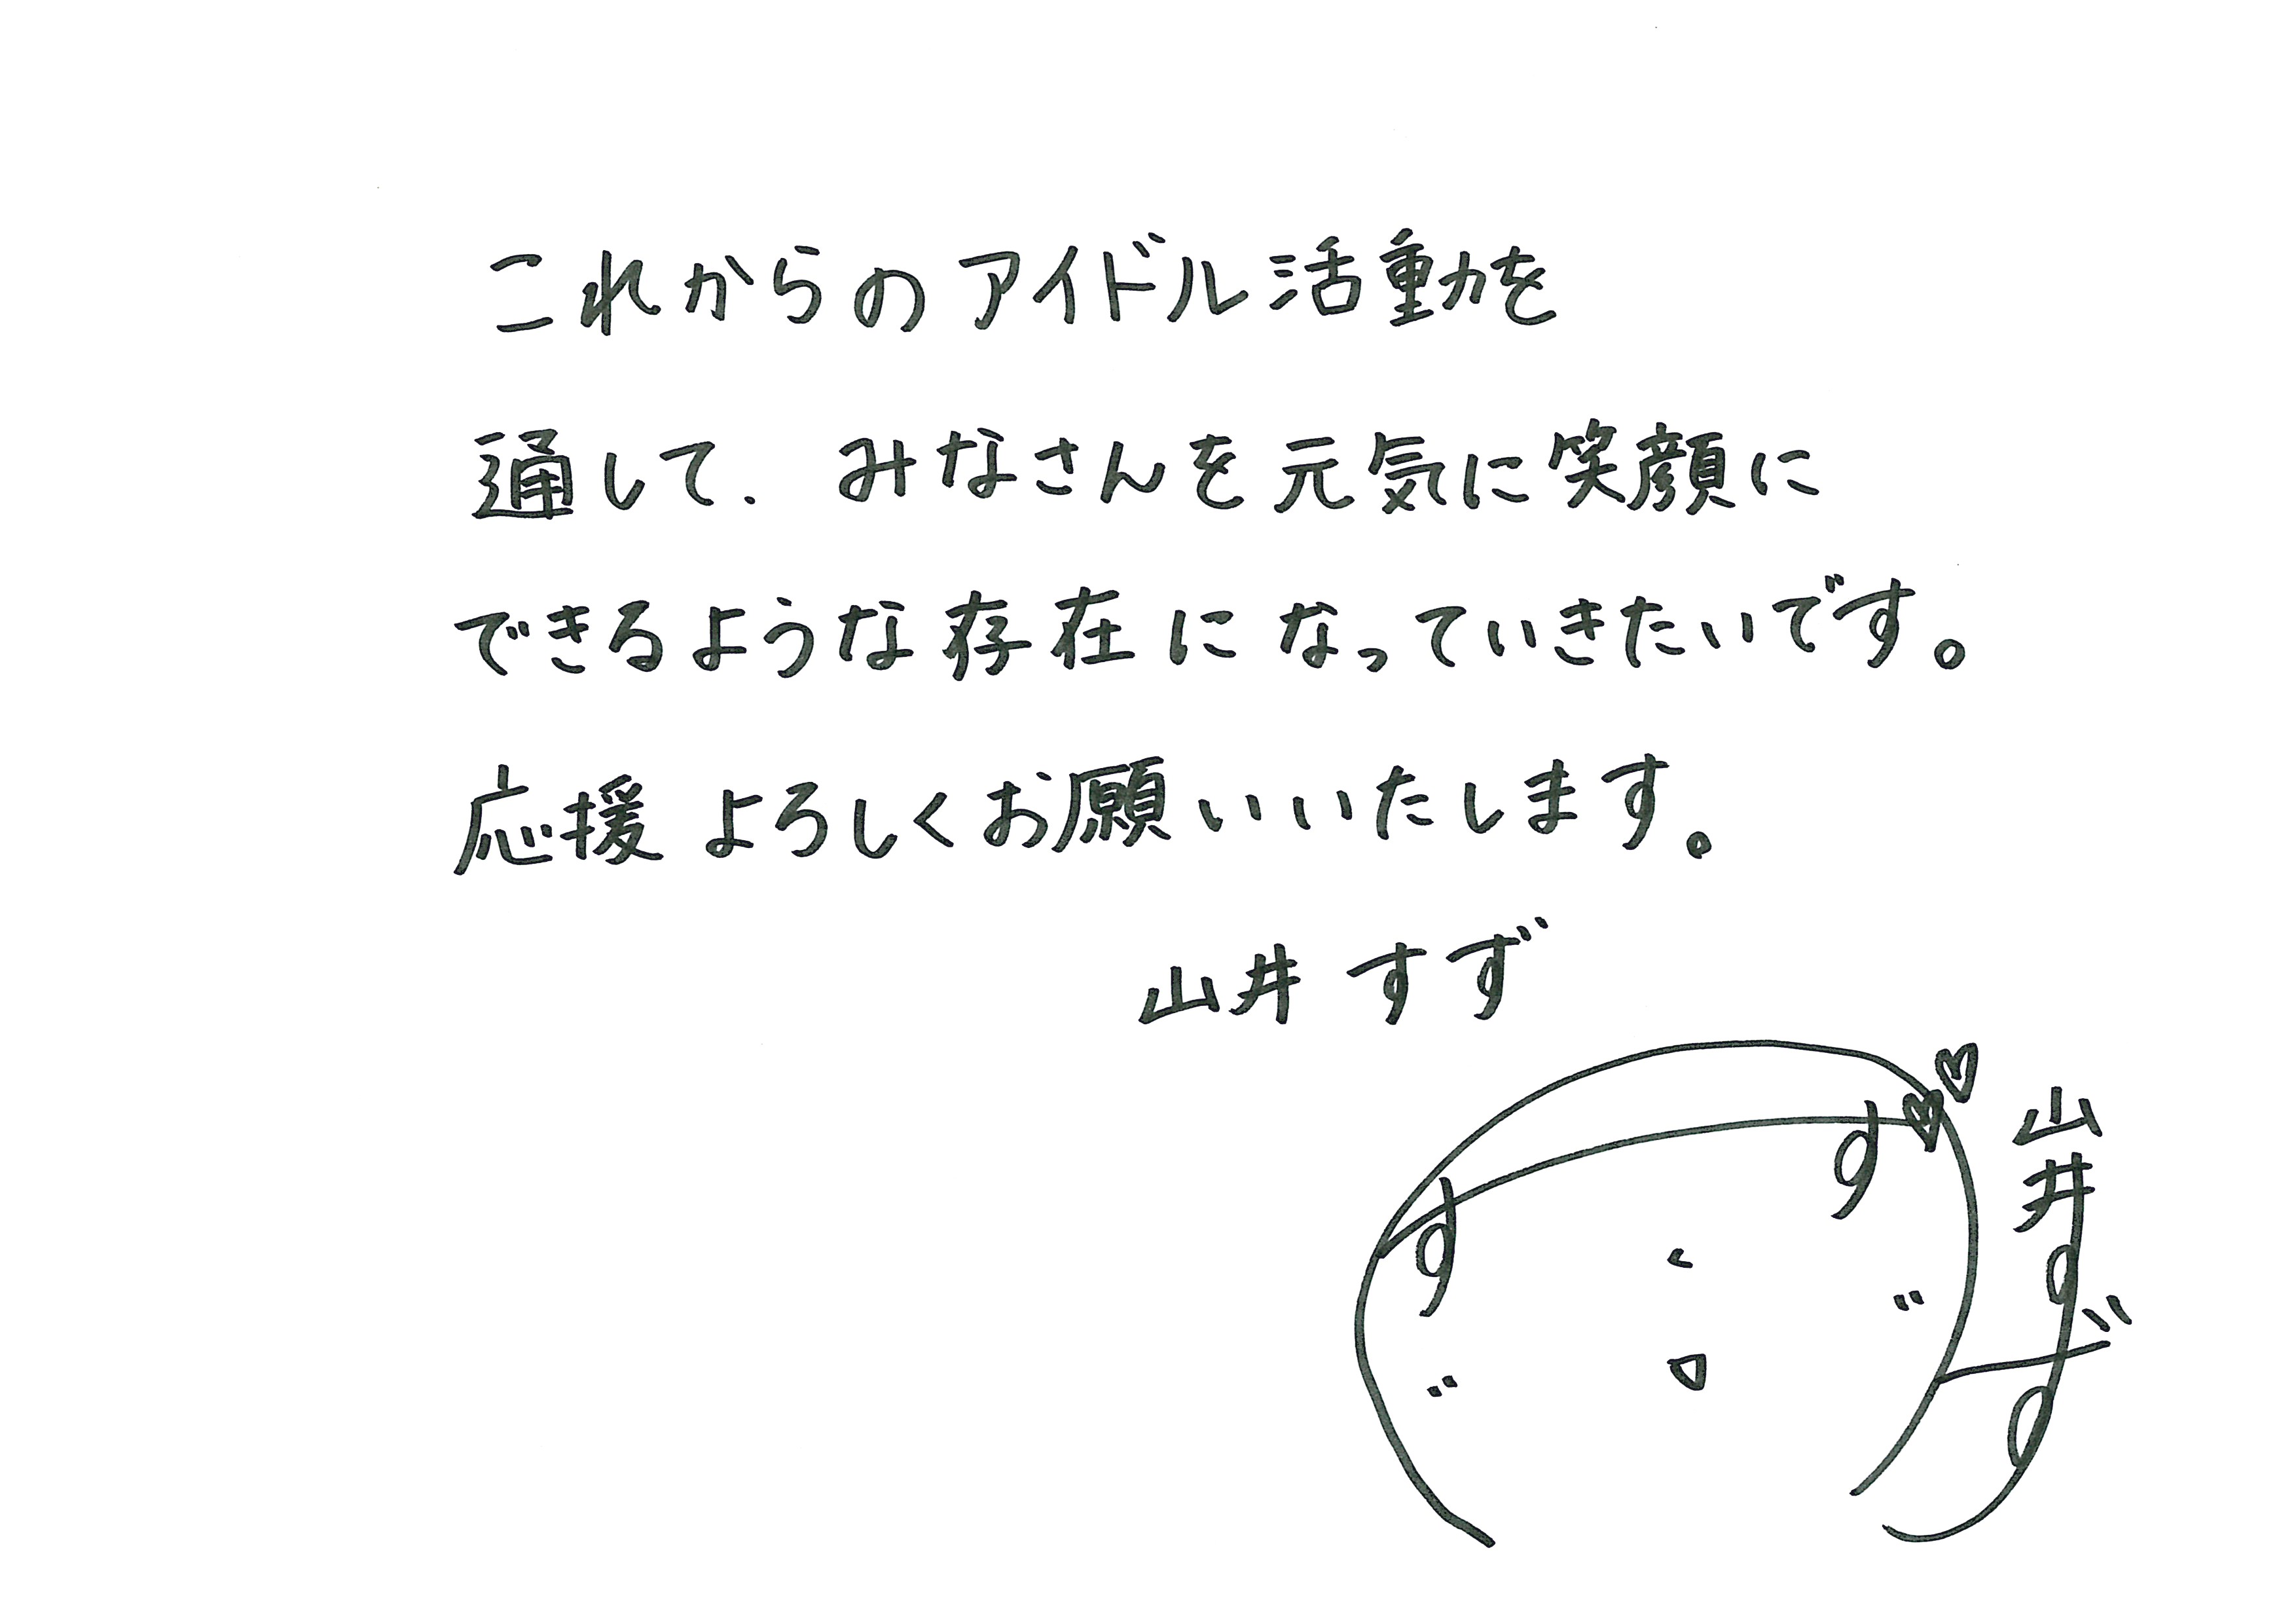 これからのアイドル活動を
通して、みなさんを元気に笑顔に
できるような存在になっていきたいです。
応援よろしくお願いいたします。
山井すず
す す
山井すず